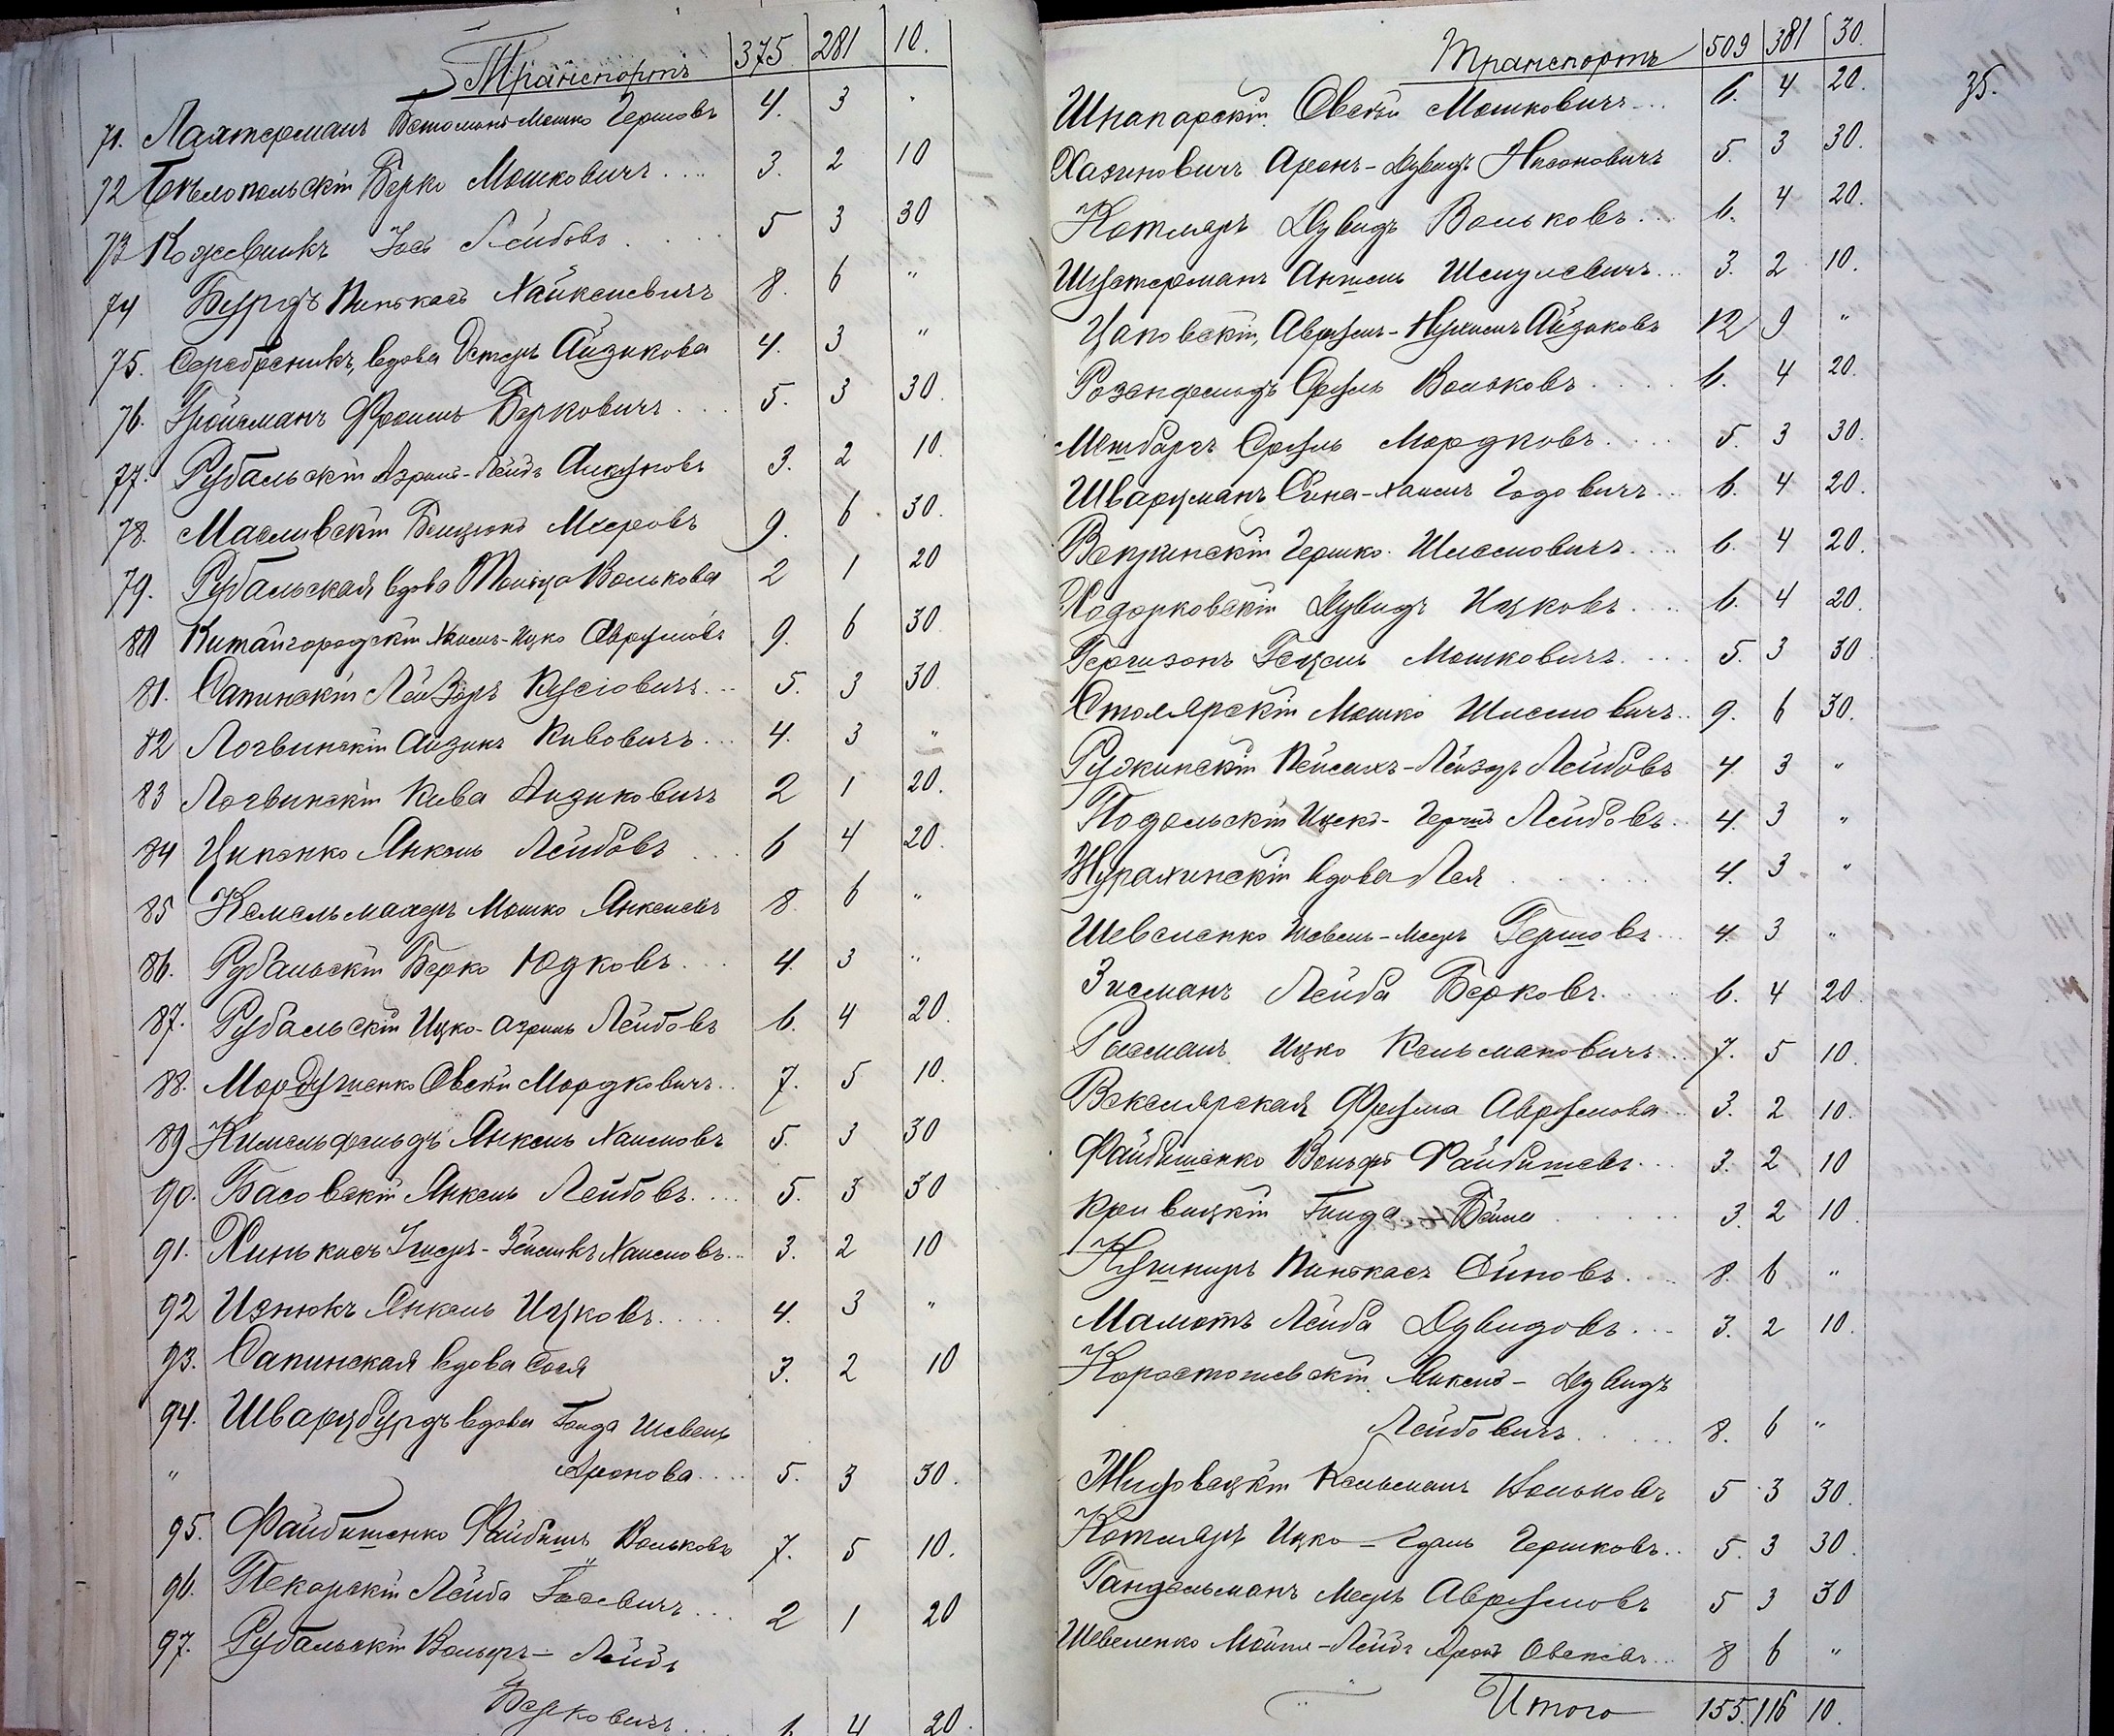 Транспортъ 375 281 10.
71. Лахтерманъ Мошко Гершовъ 4. 3 "
72 Бѣлопольскій Берко Мошковичъ 3. 2 10
73 Кожевникъ Іось Лейбовъ 5 3 30
74 Бурдъ Пинькасъ 8. 6 "
75. Серебреникъ, вдова Эстеръ Айзикова 4. 3 "
76. Гройсманъ Фроимъ Берковичъ 5. 3 30.
77. Рубальскій Азриль-Лейбъ 3. 2 10.
78. Масливскій Бенціонъ Мееровъ 9. 6 30.
79. Рубальская вдова Волькова 2 1 20
80 Китайгородскій Хаимъ-Ицко Аврумовъ 9. 6 30
81. Сапинскій Лейзоръ Кусіовичъ 5. 3 30
82 Логвинскій Айзикъ Кивовичъ 4. 3 "
83 Логвинскій Кива Айзиковичъ 2 1 20.
84 Ципенко Янкель Лейбовъ 6 4 20.
85 Кемельмахеръ Мошко Янкелевъ 8. 6 "
86. Рубальскій Берко Юдковъ 4. 3 "
87. Рубальскій Ицко-Азриль Лейбовъ 6. 4 20.
88. Мордушенко Овсѣй Мордковичъ 7. 5 10.
89 Кимельфельдъ Янкель Хаимовъ 5. 3 30
90. Басовскій Янкель Лейбовъ 5. 3 30
91. Хинькисъ Зейликъ Хаимовъ 3. 2 10
92 Изнюкъ Янкель Ицковъ 4. 3 "
93. Сапинская вдова Сося 3. 2 10
94. Шварцбурдъ вдова Генда
" Аронова 5. 3 30.
95. Файбишенко Файбишъ Вольковъ 7. 5 10.
96. Пекарскій Лейба 2 1 20
97. Рубальскій Вольфъ-Лейбъ
Берковичъ 6. 4 20.
Транспортъ 509 381 30.
35.
Шкапарскій Овсѣй Мошковичъ 6. 4 20.
Хазиновичъ Аронъ-Дувидъ Нисоновичъ 5. 3 30.
Котляръ Дувидъ Вольковъ 6. 4 20.
Шустерманъ Аншель Шмулевичъ 3. 2 10.
Цаповскій, Аврумъ-Нухимъ Айзиковъ 12 9 "
Розенфельдъ Сруль Вольковъ 6. 4 20.
Сруль Мордковъ 5. 3 30.
Шварцманъ Сина-Хаимъ Годовичъ 6. 4 20.
Векринскій Гершко Шлемовичъ 6. 4 20.
Ходорковскій Дувидъ Ицковъ 6. 4 20.
Гершзонъ Гецель Мошковичъ 5. 3 30
Столярскій Мошко Шлемовичъ 9. 6 30.
Ружинскій Пейсахъ-Лейзоръ Лейбовъ 4. 3 "
Подольскій Ицко-Гершъ Лейбовъ 4. 3 "
Журахинскій вдова Лея 4. 3 "
Шевеленко Шевель-Мееръ Гершовъ 4. 3 "
Зисманъ Лейба Берковъ 6. 4 20.
Ройсманъ Ицко Кельмановичъ 7. 5 10.
Векслярская Фрума Аврумова 3. 2 10.
Файбишенко Вольфъ Файбишевъ 3. 2 10
Кривицкій Генда-Бейла 3. 2 10.
Кушниръ Пинькасъ Синовъ 8. 6 "
Маломъ Лейба Дувидовъ 3. 2 10.
Коростошевскій Микель-Дувидъ
Лейбовичъ 8. 6 "
Жидовецкій Кельманъ Вольковъ 5 3 30.
Котляръ Ицко-Гдаль Гершковъ 5. 3 30.
Гандельманъ Мееръ Аврумовъ 5 3 30
Шевеленко Лейбъ Овсѣевъ 8 6 "
Итого 155. 116 10.